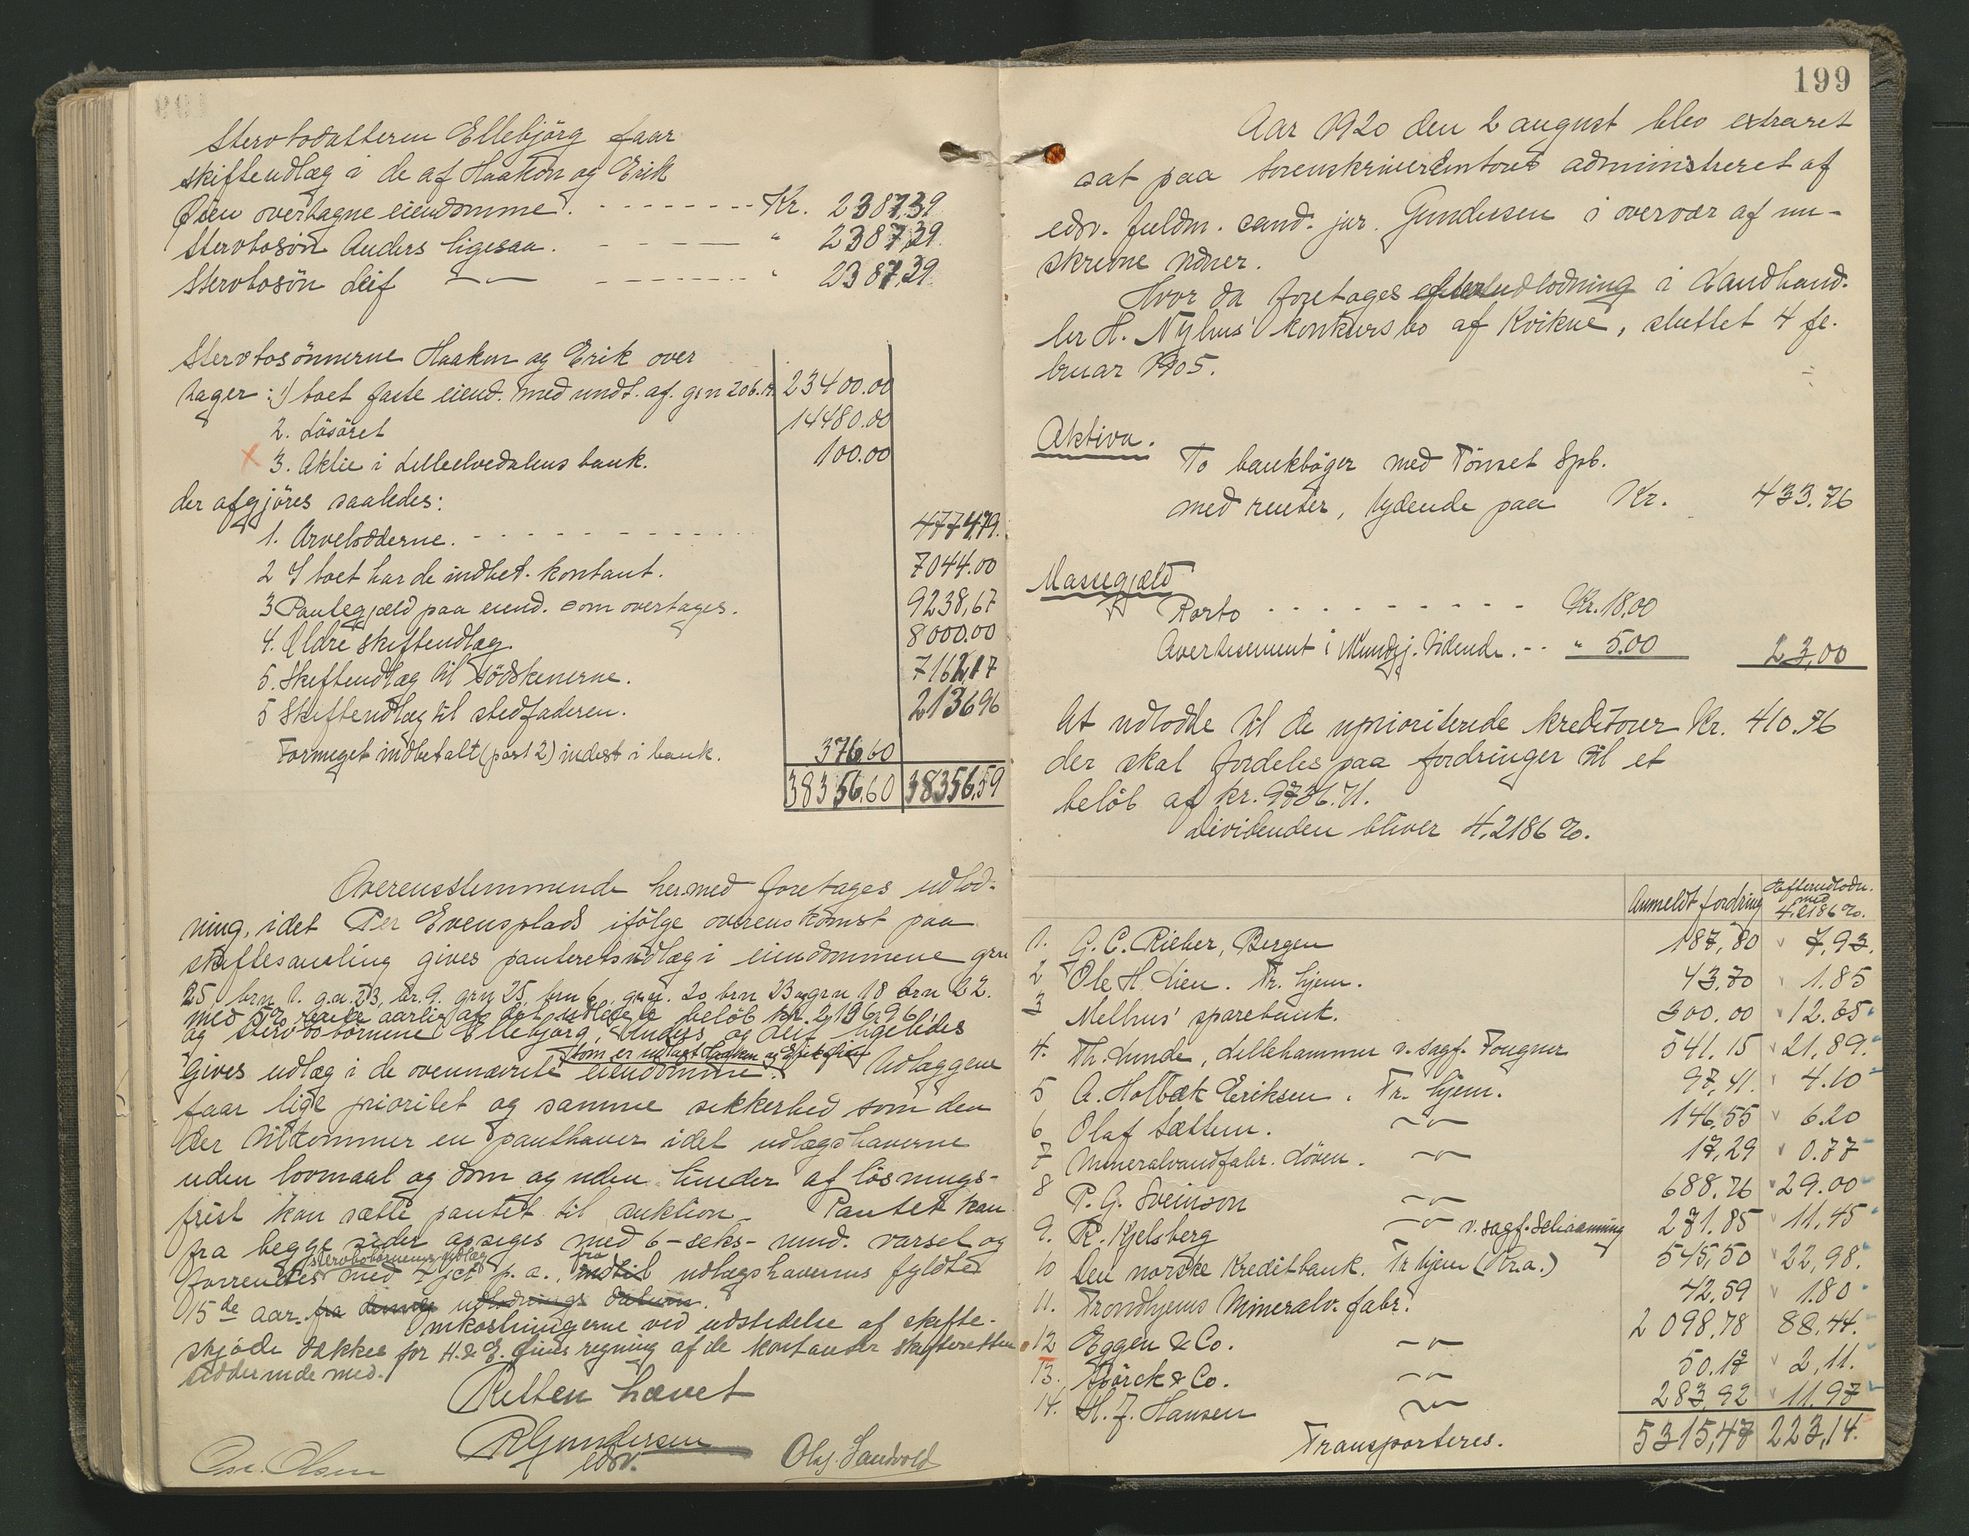 Stervbodatteren Ellebjörg faar
skifteudlæg i de af Haakon og Erik
Øien overtagne eiendomme. Kr. 2387,39
Stervbosøn Anders ligesaa. " 2387,39
Stervbosøn Leif -"- " 2387,39
Stervbosönnerne Haakon og Erik over
tager: 1) boet faste eiend. med undt. af gn 20 b. 23400.00
2. Lösöret 14480.00
3. Aktie i Lilleelvedalens bank. 100.00
der afgjöres saaledes:
1. Arvelodderne. 4774,79.
2 I boet har de indbet. kontant. 7044.00
3 Pantegjæld paa eiend. som overtages. 9238,67
4. Ældre skifteudlæg 8000.00
5. Skifteudlæg til södskenerne. 7162,17
5 Skifteudlæg til stedfaderen. 213696
Formeget indbetalt (post 2) indest i bank. 376.60
38356,60 38356,59
Overensstemmende hermed foretages udlod-
ning, idet Per Evensplads ifölge overenskomst paa
skiftesamling gives panteretsudlæg i eiendommene grn
25 brn 1. g.n. 23, br. 9. grn 25, brn 6, grn. 20 brn 23 og grn 18 brn 22.
med 5% rente aarlig af det udlagte beløb kr. 2136,96
og Stervbobörnene Ellebjörg, Anders og Leif ligeledes
gives udlæg i de ovennævnte eiendomme som er udlagt Haakon og Erik Øien. Udlæggene
faar lige prioritet og samme sikkerhed som den
der tilkommer en panthaver idet udlægshaverne
uden lovmaal og dom og uden hinder af lösnings-
frist kan sætte pantet til auktion. Pantet kan
fra begge sider opsiges med 6-seks- mnd. varsel og
stervbobørnenes udlæg fra
forrentes med 4 pct p. a., indtil udlægshavernes fyldte
15de aar. fra denne udlodnings datum.
Omkostningerne ved udstedelse af skifte-
skjøde dækkes for H. & E. Øiens regning af de kontanter skifteretten
sidder inde med.
Retten hævet
R Gundersen
edsv.
Ole. Olsen
Olaf Sandvold
199
Aar 1920 den 2 august blev extraret
sat paa sorenskriverkontoret administreret af
edsv. fuldm. cand. jur. Gundersen i overvær af un-
skrevne vidner.
Hvor da foretages efterudlodning i Landhand-
ler H. Nyhus' konkursbo af Kvikne, sluttet 4 fe-
bruar 1905.
Aktiva.
To bankbøger med Tönset Spb.
med renter, lydende paa Kr. 433.76
Massegjæld
Porto Kr. 18.00
Avertisement i Kundgj. tidende. " 5.00 23,00
At udlodde til de uprioriterede kreditorer Kr. 410.76
der skal fordeles paa fordringer til et
belöb af kr. 9736.71.
Dividenden bliver 4,2186 %.
Anmeldt fordring Efterudlodn. med 4,2186 %.
1. G. C. Rieber, Bergen 187,80 7,93.
2 Ole H. Lien. Tr. hjem. 43,70 1.85
3 Melhus' sparebank. 300.00 12.65
4. Th. Lunde, Lillehammer v. sagf. Fougner 541.15 21,89.
5 A. Holbæk Eriksen. Tr. hjem. 97,41. 4.10
6 Olaf Sættem. -"- 146,55 6.20
7 Mineralvandfabr. Löven. -"- 17,29 0.77
8 P. G. Sveinson -"- 688.76 29.00
9. R. Kjelsberg -"- v. sagf. Schaanning 271.85 11,45
10 Den norske Kreditbank. Tr hjem (Kr.a.) 545,50 22,98.
11. Trondhjems Mineralv. fabr. 42,59 1.80
12 Eggen & Co. -"- 2 098,78 88.44.
13. Mörck & Co. -"- 50.17 2,11.
14. H. J. Hansen -"- 283,92 11.97
Transporteres. 5315,47 223,14.